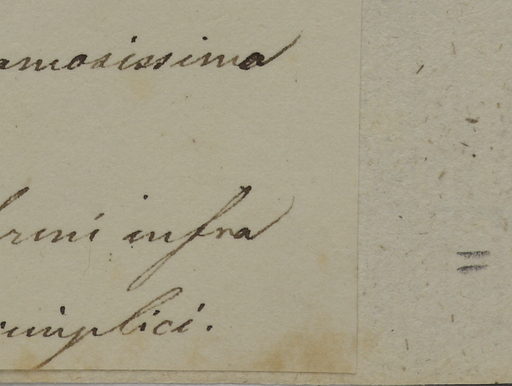 amosissima
breni infra
simplici.